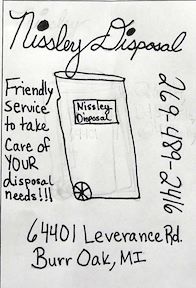 Nissley Disposal
Friendly
Service
to take
Care of
YOUR
disposal
needs!!!
Nissley
Disposal
269-489-2416
64401 Leverance Rd.
Burr Oak, MI